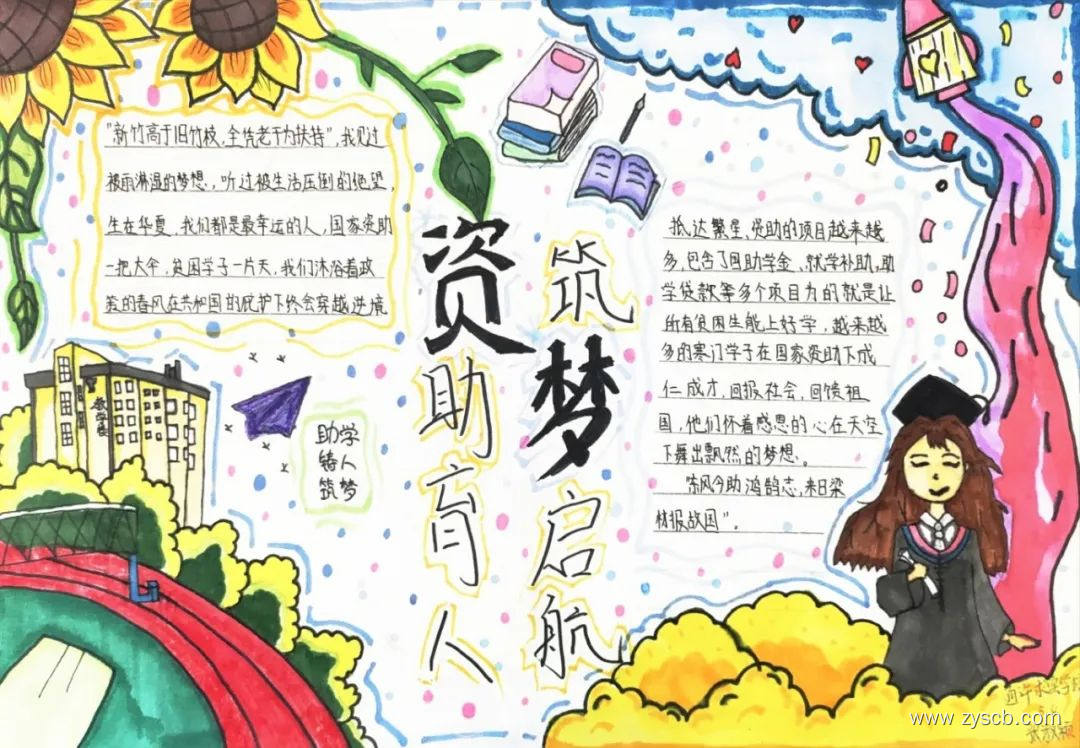 资助育人
筑梦启航
"新竹高于旧竹枝,全凭老干为扶持",我见过
被雨淋湿的梦想,听过被生活压倒的绝望,
生在华夏,我们都是最幸运的人,国家资助
一把大伞,贫困学子一片天,我们沐浴着政
策的春风在共和国的庇护下终会穿越逆境
教学楼
助学
铸人
筑梦
抵达繁星、资助的项目越来越
多,包含了国助学金、就学补助,助
学贷款等多个项目为的就是让
所有贫困生能上好学,越来越
多的寒门学子在国家资助下成
仁成才,回报社会,回馈祖
国,他们怀着感恩的心在天空
下舞出飘然的梦想。
东风今助鸿鹄志,来日梁
材报故国"。
www.zyscb.com